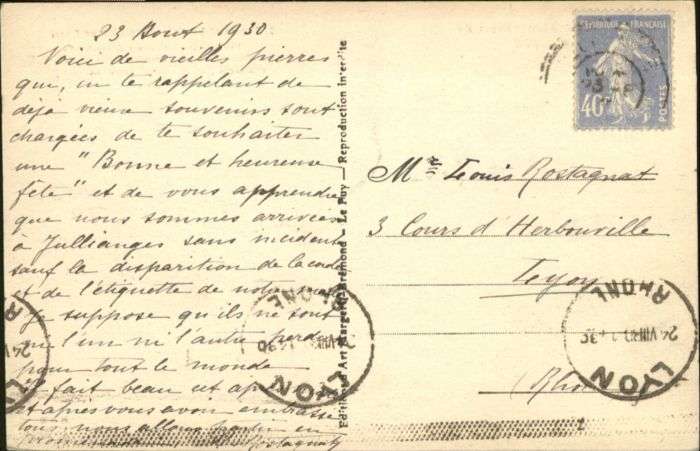 23 Aout 1930
Voici de vieilles pierres
que, en te rappelant de
déjà vieux souvenirs sont
chargées de te souhaiter
une "Bonne et heureuse
fête" et de vous apprendre
que nous sommes arrivées
à Jullianges sans incident
sauf la disparition de la corde
et de l'étiquette de notre
je suppose qu'ils ne sont
que l'un ni l'autre perdu
pour tout le monde
fait beau et
et après vous avoir embrassé
tous nous allons partir en
promenade
Rostagnat
Editions d'Art Margerit-Brémond - Le Puy - Reproduction interdite
RÉPUBLIQUE FRANÇAISE
40c
POSTES
Mr Louis Rostagnat
3 Cours d'Herbouville
Lyon
(Rhône
LYON
RHONE
24 VIII
LYON
RHONE